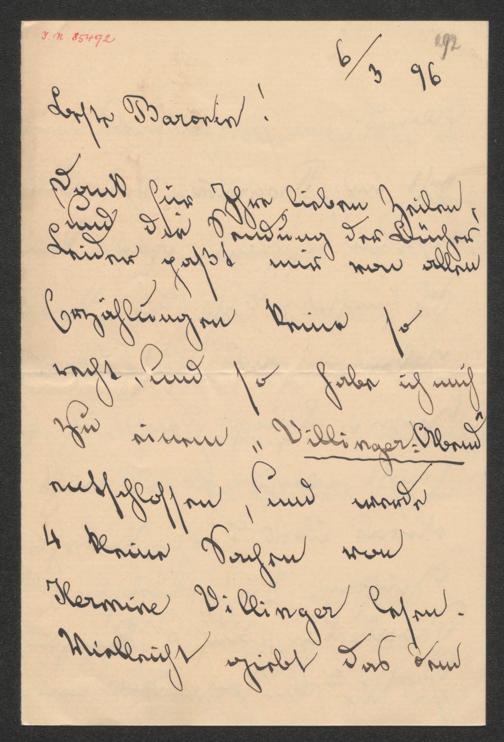 I.N. 85492
192
6/3 96
Beste Baronin!
Dank für Ihre lieben Zeilen,
und die Sendung der Bücher
Leider paßt mir von allen
Erzählungen keine so
recht, und so habe ich mich
zu einem „Villinger-Abend"
entschlossen, und werde
4 kleine Sachen von
Hermine Villinger lesen.
Vielleicht giebt das dem